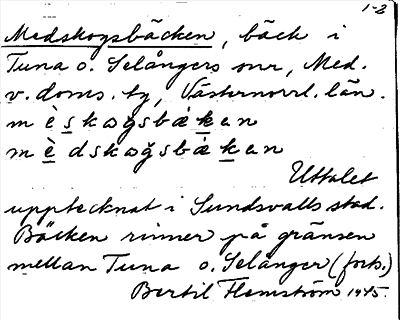 1-2
Medskogsbäcken, bäck i
Tuna o. Selångers snr, Med.
v. doms. tg, Västernorrl. län.
m è s k ω g s b á k e n
m è d s k ω g̃ s b á k e n
Uttalet
upptecknat i Sundsvalls stad.
Bäcken rinner på gränsen
mellan Tuna o. Selånger (forts.)
Bertil Flemström 1945.